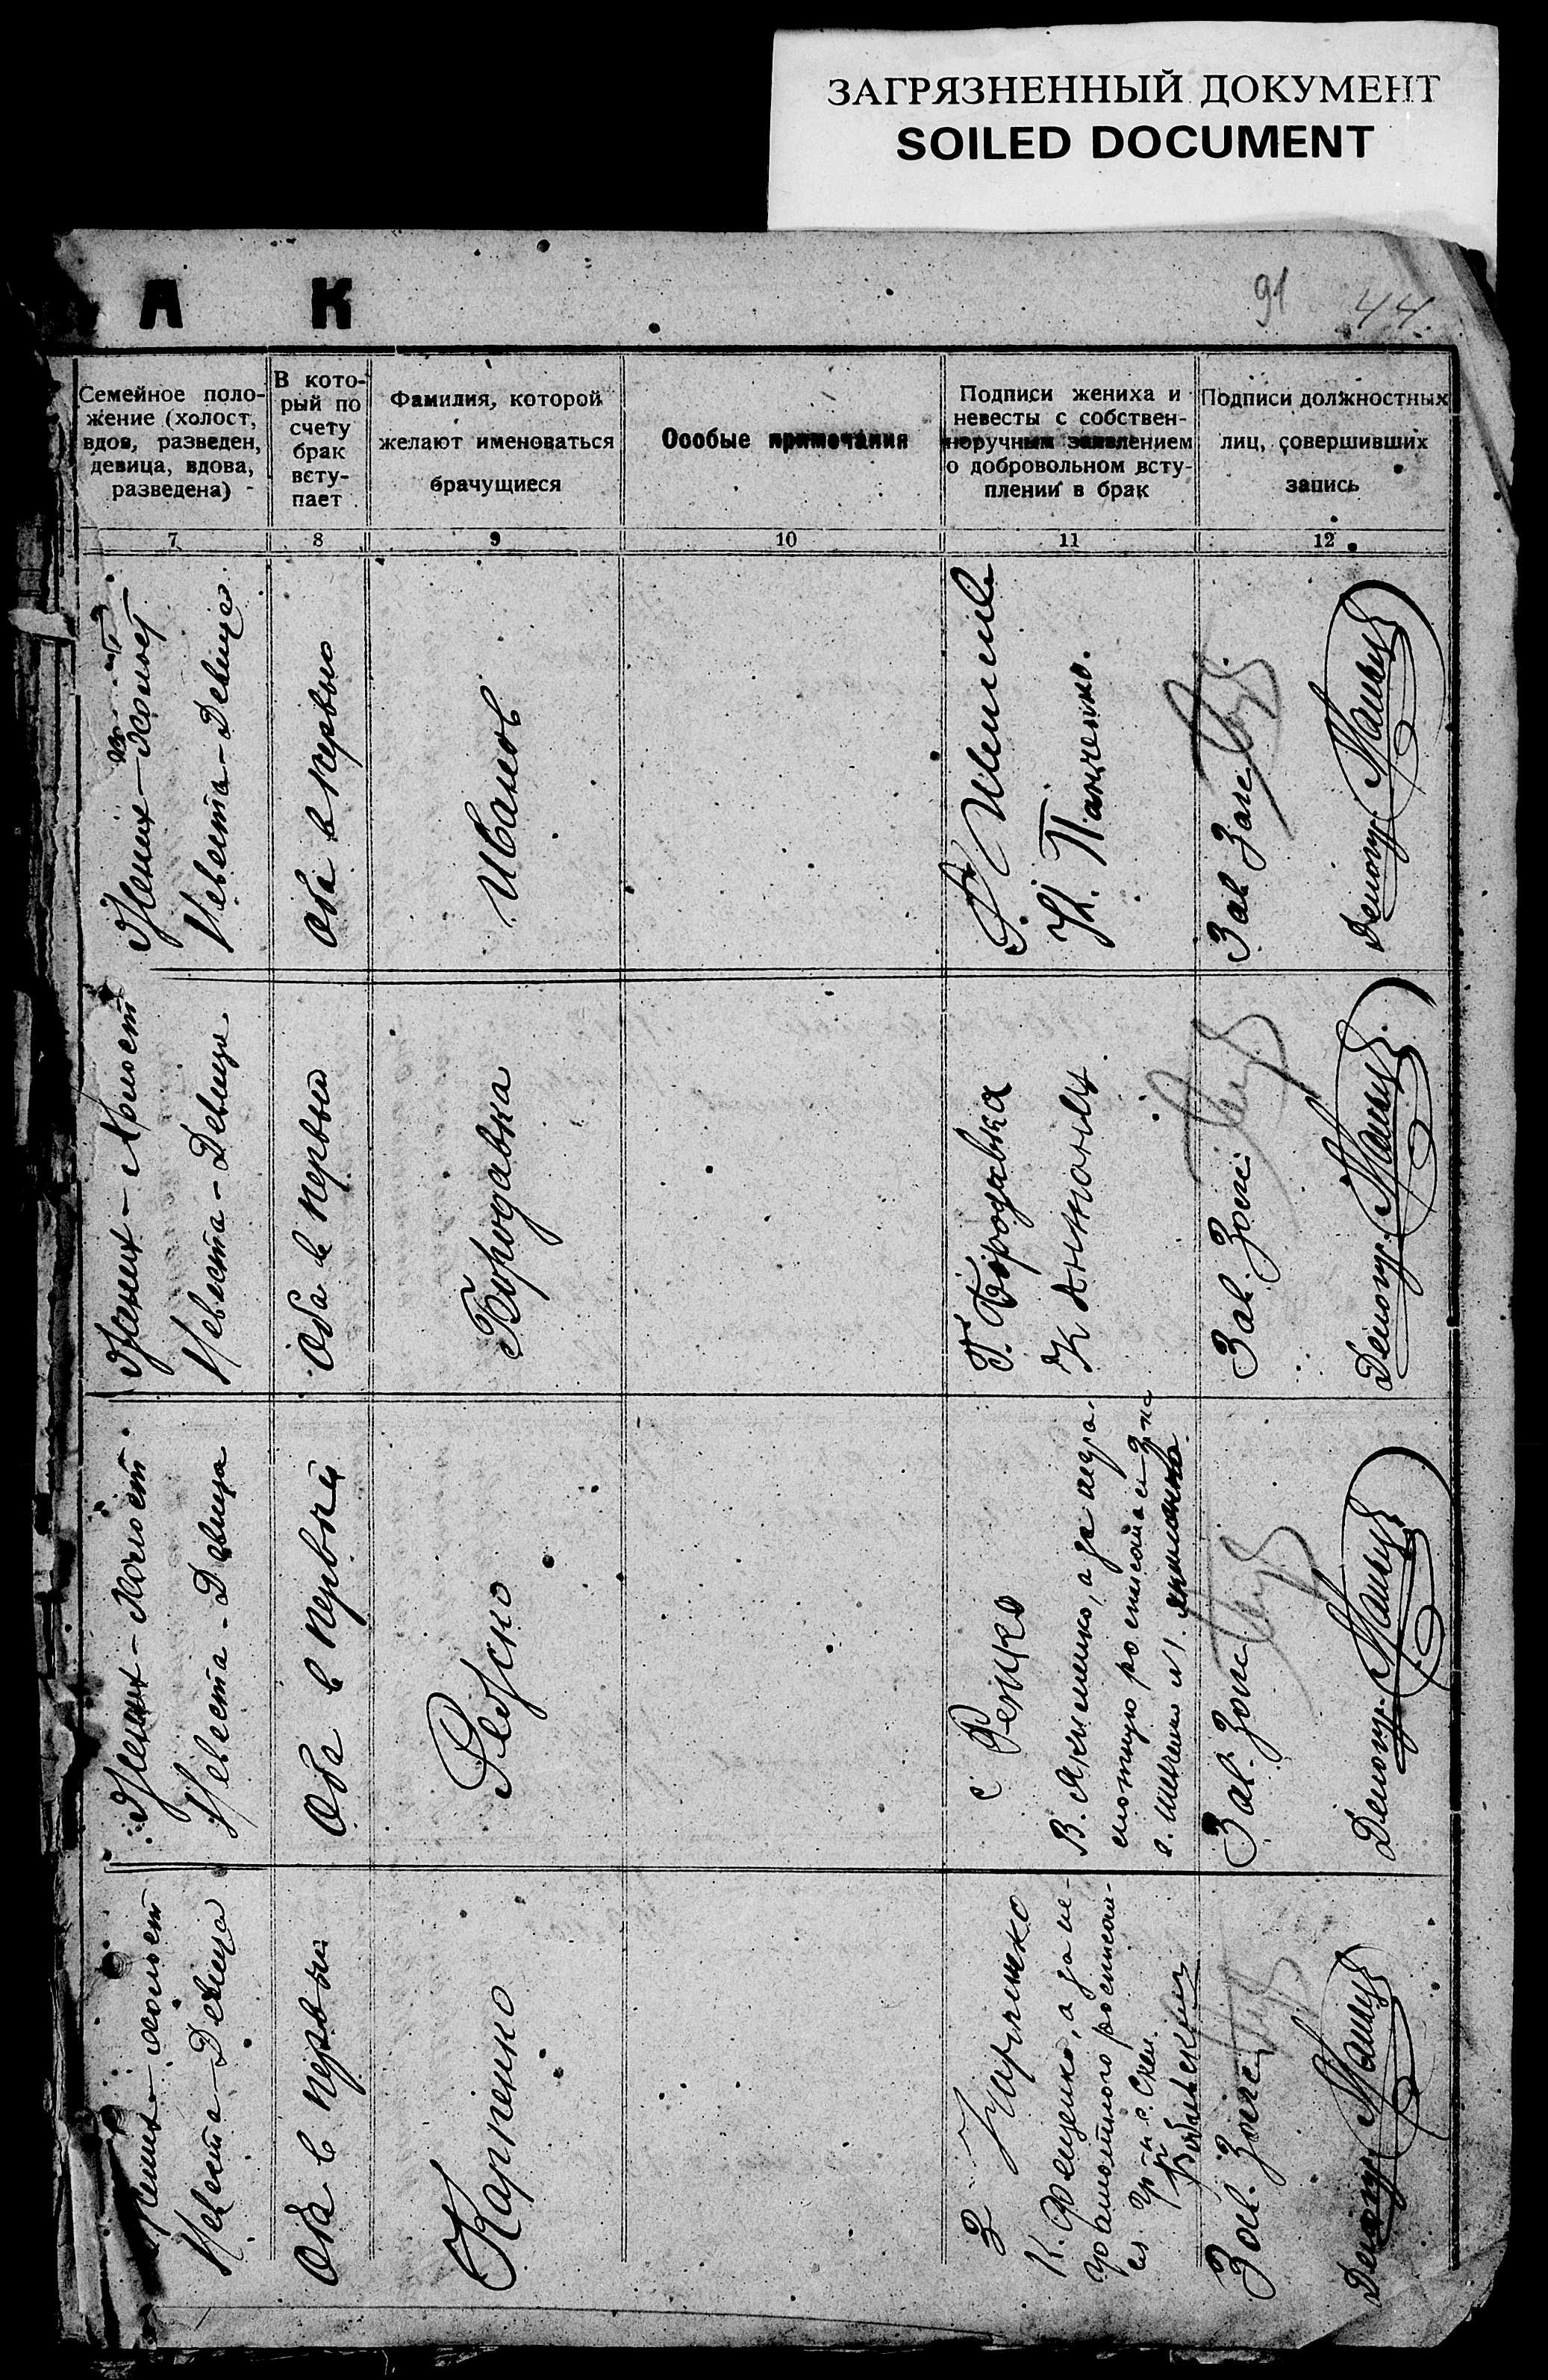 ЗАГРЯЗНЕННЫЙ ДОКУМЕНТ
SOILED DOCUMENT
А К
91 44.
Семейное поло-
жение (холост,
вдов, разведен,
девица, вдова,
разведена)
В кото-
рый по
счету
брак
всту-
пает
Фамилия, которой
желают именоваться
брачущиеся
Особые примечания
Подписи жениха и
невесты с собствен-
норучным заявлением
о добровольном всту-
плении в брак
Подписи должностных
лиц, совершивших
запись
7 8 9 10 11 12
Жених – Холост
Невеста – Девица
Оба в первый
Иванов
К. Панченко.
Зав. Загс
Делопр.
Жених – Холост
Невеста – Девица
Оба в первый
Бородавка
Г. Бородавка
К
Зав. Загс
Делопр.
Жених – Холост
Невеста – Девица
Оба в первый
Редько
С Редько
В. Якименко, а за негра-
мотную росписался
Зав. Загс
Делопр.
Жених – холост
Невеста – Девица
Оба в первый
Карпенко
З Карпенко
К. Фещенко, а за не-
грамотного росписал-
ся Гр-н с. Скел.
Зав. Загс
Делопр.